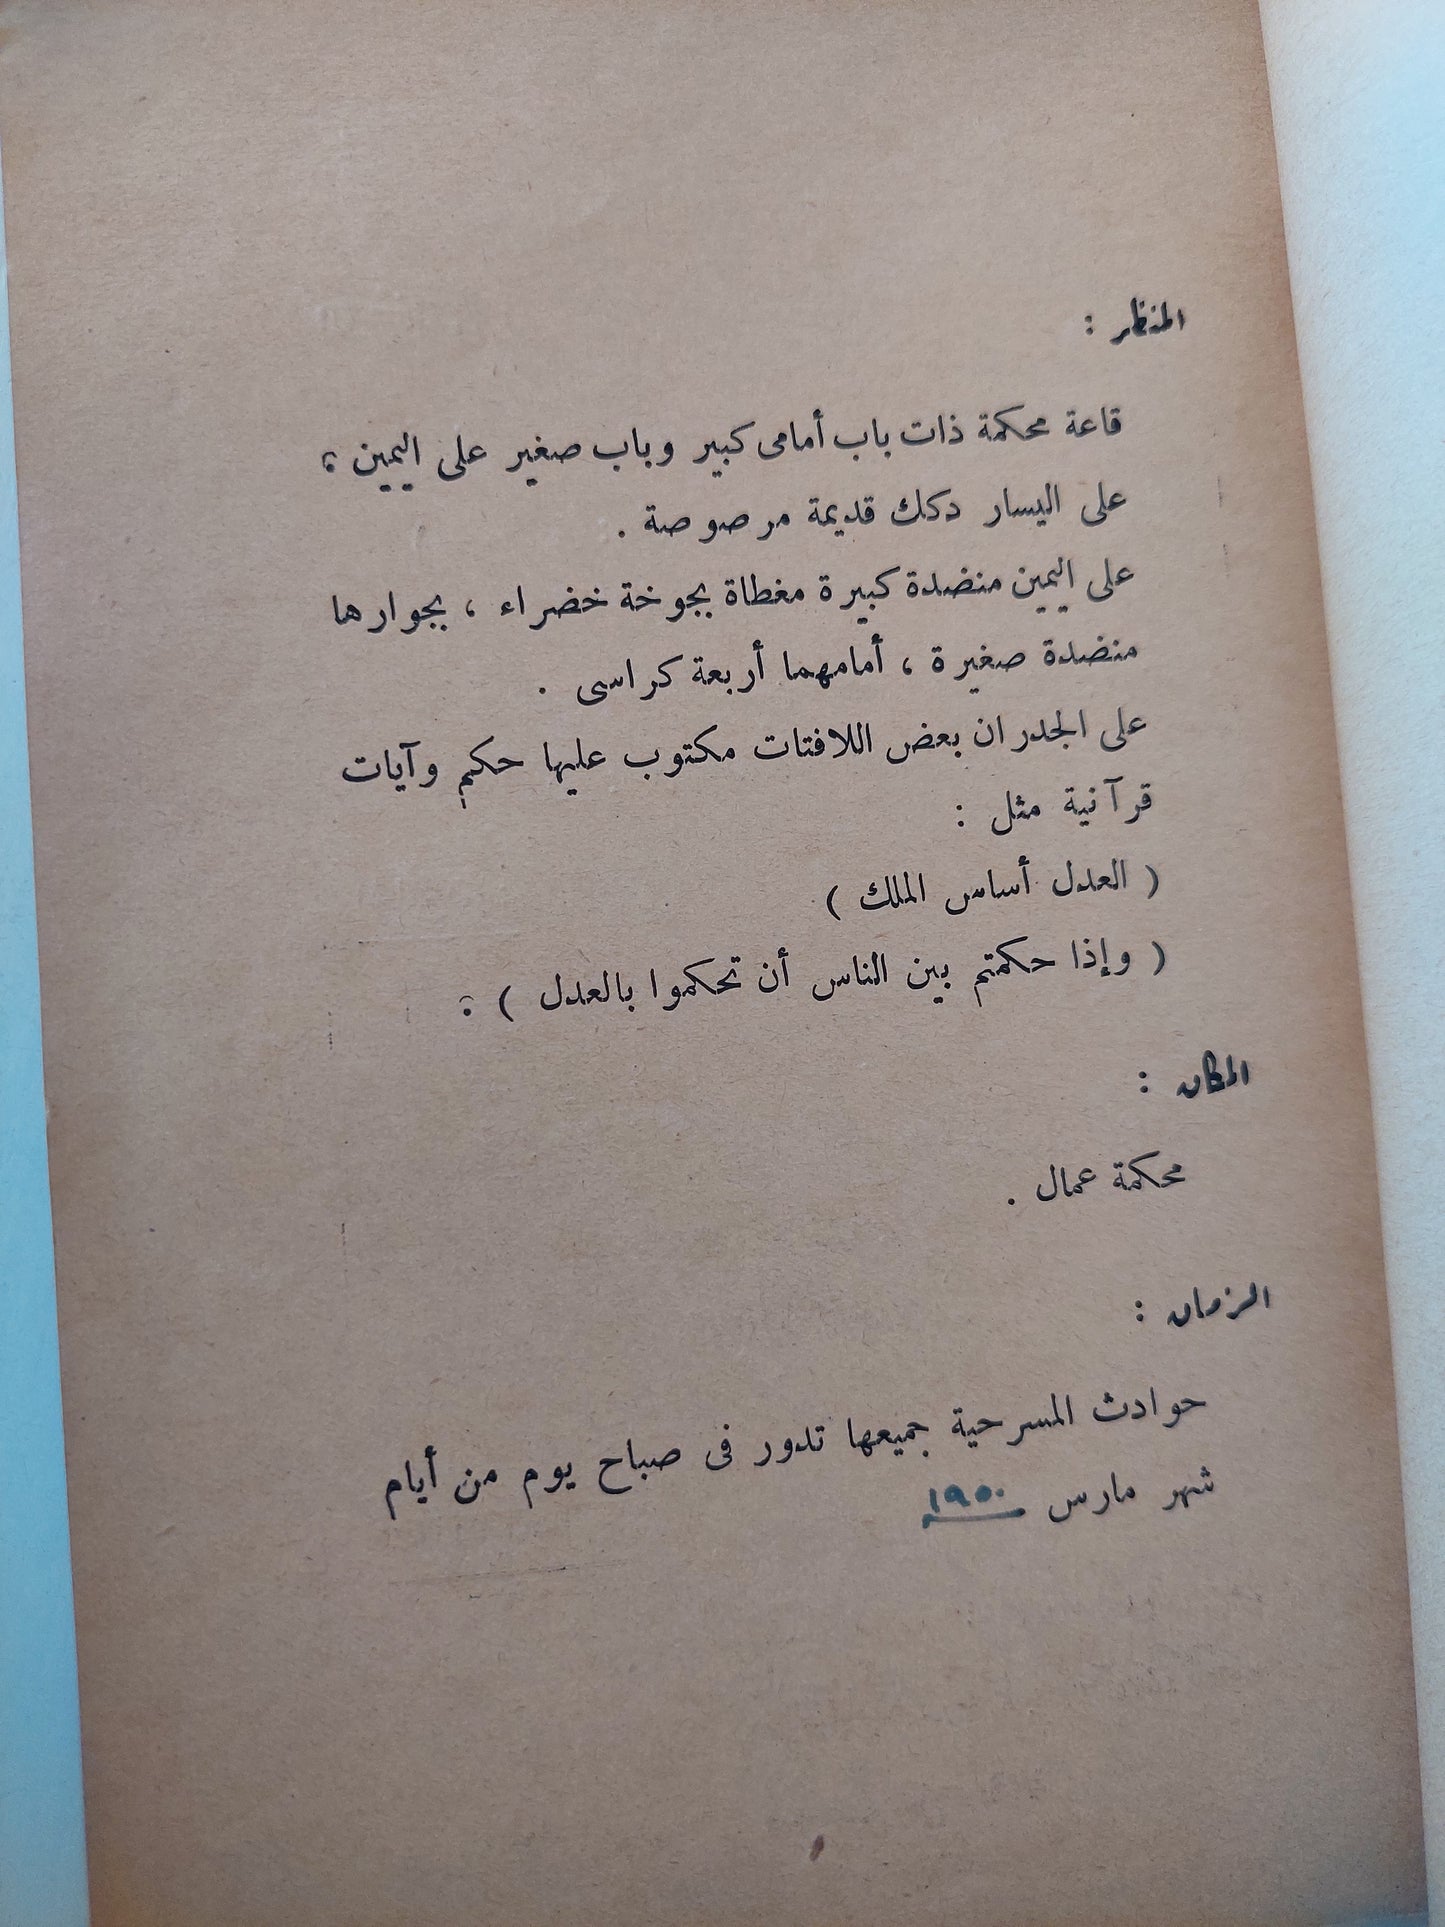 المنظر :
قاعة محكمة ذات باب أمامى كبير وباب صغير على اليمين ؛
على اليسار دكك قديمة مرصوصة .
على اليمين منضدة كبيرة مغطاة بجوخة خضراء ، بجوارها
منضدة صغيرة ، أمامهما أربعة كراسى .
على الجدران بعض اللافتات مكتوب عليها حكم وآيات
قرآنية مثل :
( العدل أساس الملك )
( وإذا حكمتم بين الناس أن تحكموا بالعدل ) ؛
المكان :
محكمة عمال .
الزمان :
حوادث المسرحية جميعها تدور فى صباح يوم من أيام
شهر مارس ١٩٥٠